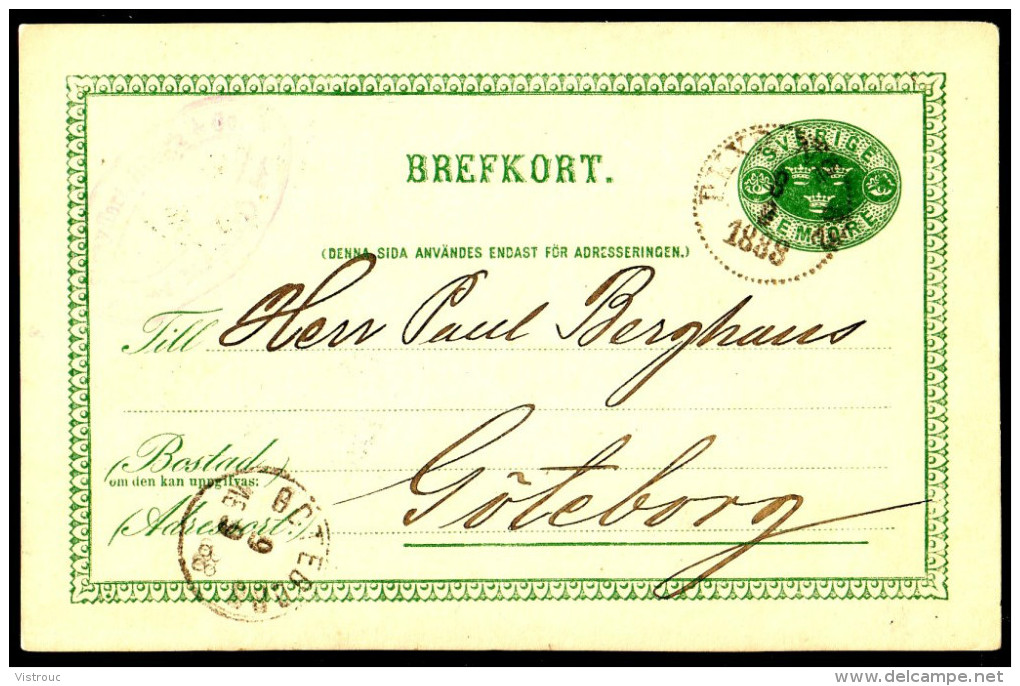 SVERIGE
BREFKORT.
FEM ÖRE
1888
(DENNA SIDA ANVÄNDES ENDAST FÖR ADRESSERINGEN.)
Till Herr Paul Berghaus
(Bostad
om den kan uppgifvas:
Göteborg
(Adresspost:
GÖTEBORG
Vistrouc
delcampe.net